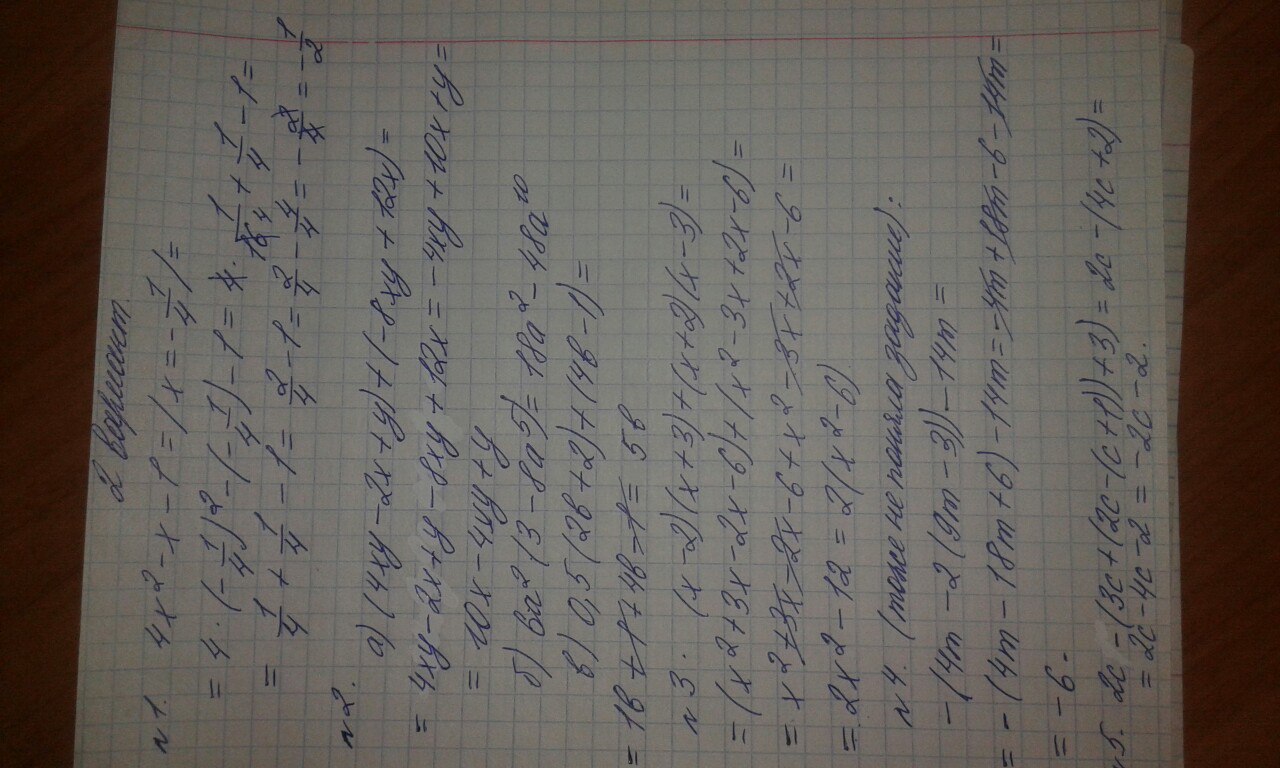 2 вариант.
№1. 4x² - x - 1 = (x = -1/4) =
= 4 · (-1/4)² - (-1/4) - 1 = 4 · 1/16 4 + 1/4 - 1 =
= 1/4 + 1/4 - 1 = 2/4 - 1 = 2/4 - 4/4 = -2/4 = -1/2
№2.
а) (4xy - 2x + y) + (-8xy + 12x) =
= 4xy - 2x + y - 8xy + 12x = -4xy + 10x + y =
= 10x - 4xy + y
б) 6a² (3 - 8a⁵) = 18a² - 48a¹⁰
в) 0,5 (2в + 2) + (4в - 1) =
= 1в + 1 + 4в - 1 = 5в
№3. (x - 2)(x + 3) + (x + 2)(x - 3) =
= (x² + 3x - 2x - 6) + (x² - 3x + 2x - 6) =
= x² + 3x - 2x - 6 + x² - 3x + 2x - 6 =
= 2x² - 12 = 2(x² - 6).
№4. (тоже не поняла задание):
- (4m - 2(9m - 3)) - 14m =
= - (4m - 18m + 6) - 14m = -4m + 18m - 6 - 14m =
= -6.
№5. 2c - (3c + (2c - (c + 1)) + 3) = 2c - (4c + 2) =
= 2c - 4c - 2 = -2c - 2.